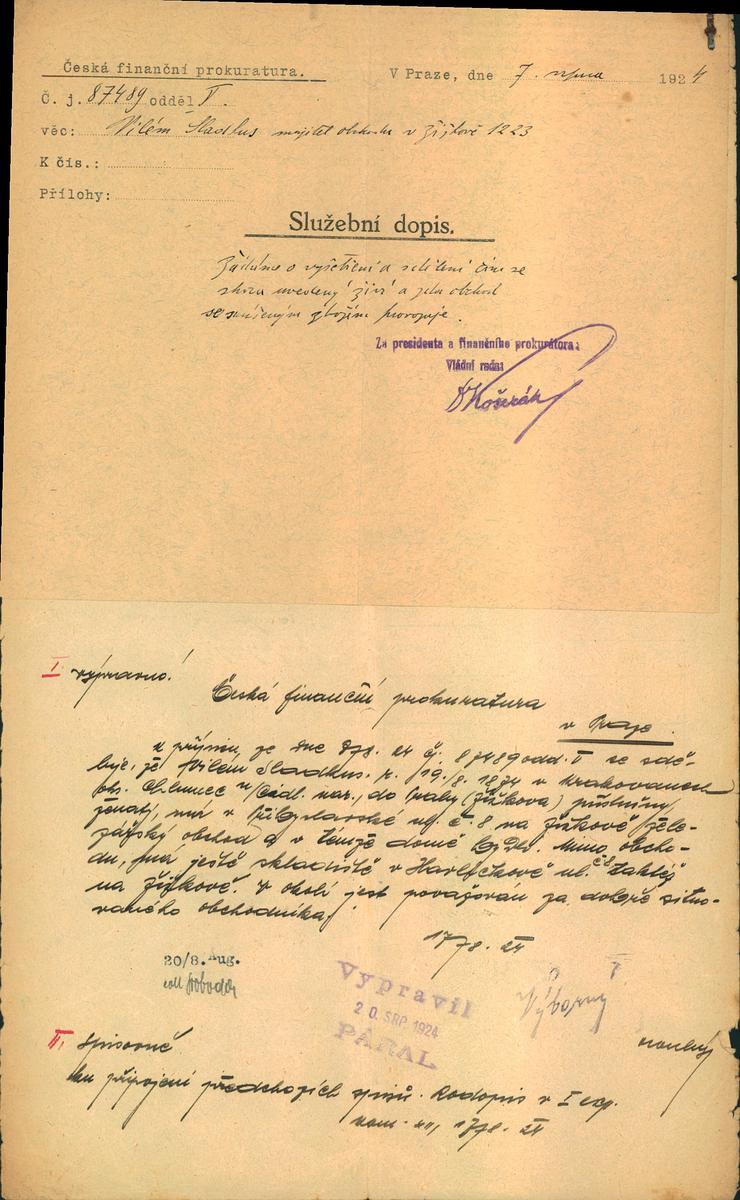 Česká finanční prokuratura.
V Praze, dne 7. srpna 1924
Č. j. 87489 odděl V.
věc: Vilém Sladkus majitel obchodu v Žižkově 1223
K čís.:
Přílohy:
Služební dopis.
Žádáme o vyšetření a sdělení čím se
shora uvedený živí a zda obchod
se smíšeným zbožím provozuje.
Za presidenta a finančního prokurátora:
Vládní rada:
I. výpravno!
Česká finanční prokuratura
v Praze.
K přípisu ze dne 7/8. 24 čj. 87489 odd. V se sdě-
luje, že Vilém Sladkus, n. 19./8. 1874 v Krakovanech
obs. Chlumec n/Cidl. nar., do Prahy (Žižkova) příslušný,
ženatý, má v ul. č. 8 na Žižkově žele-
zářský obchod a v témže domě bydlí. Mimo obcho-
du, má ještě skladiště v Havlíčkově ul. č 8 taktéž
na Žižkově. V okolí jest považován za dobře situo-
vaného obchodníka.
17/8. 24
20/8. Aug.
Svoboda
Vypravil
20. SRP. 1924
PÁRAL
Výborný
II. Spisovně
ku připojení předchozích spisů. Rodopis v I exp.
17/8. 24